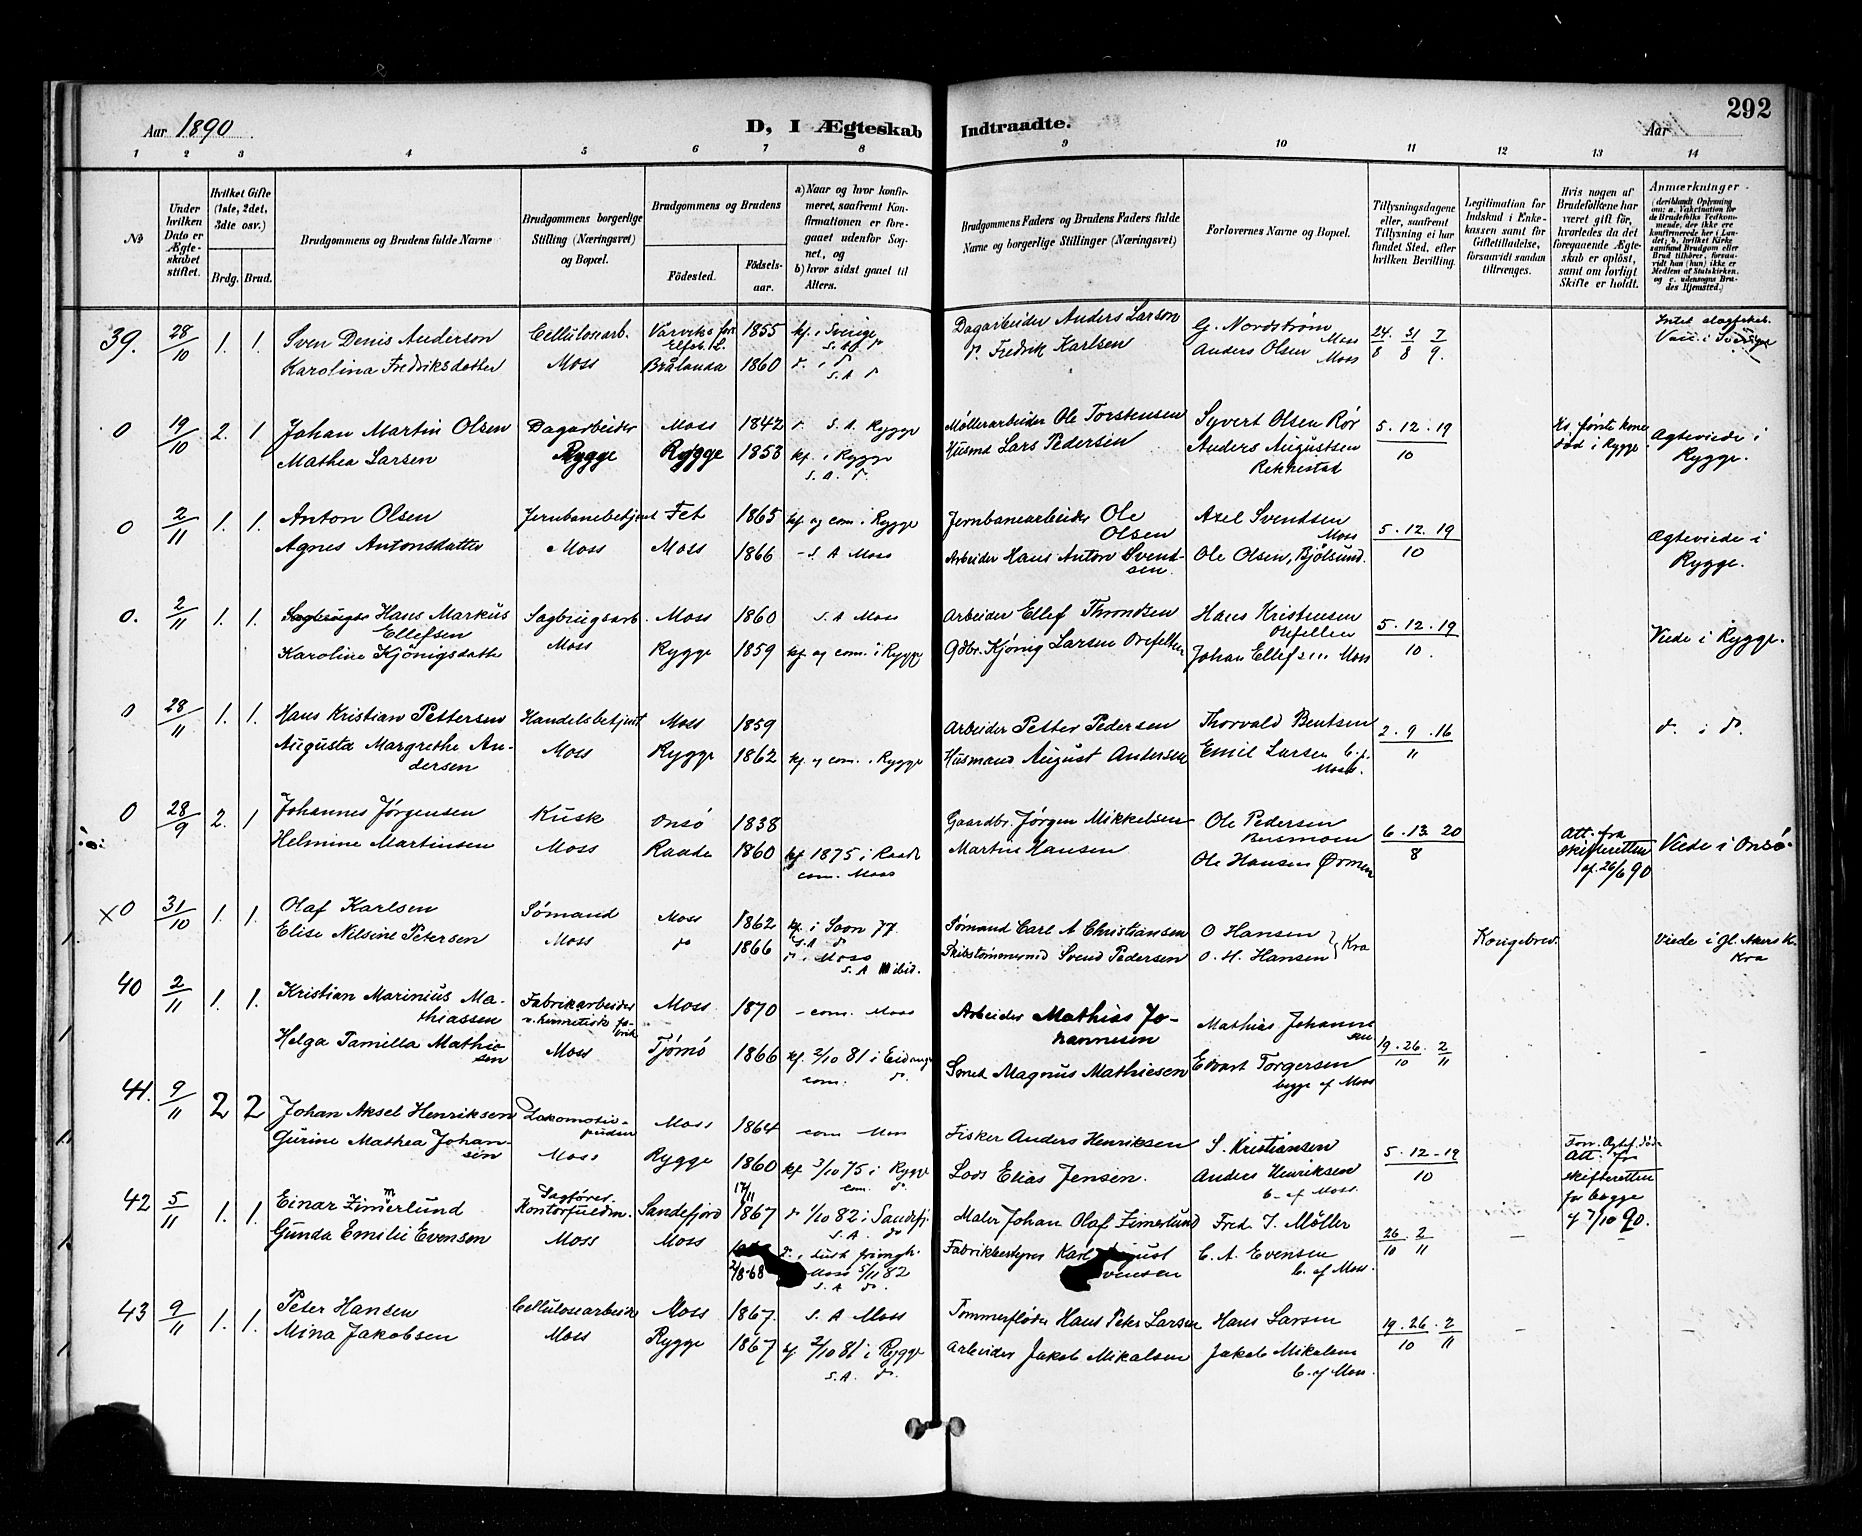 292
Aar 1890. D, I Ægteskab Indtraadte. Aar
1 2 3 4 5 6 7 8 9 10 11 12 13 14
No
Under hvilken Dato er Ægteskabet stiftet.
Hvilket Gifte (1ste, 2det, 3dte osv.)
Brdg. Brud.
Brudgommens og Brudens fulde Navne
Brudgommens borgerlige Stilling (Næringsvei) og Bopæl.
Brudgommens og Brudens
Födested. Födselsaar.
a) Naar og hvor konfirmeret, saafremt Konfirmationen er foregaaet udenfor Sognet, og
b) hvor sidst gaaet til Alters.
Brudgommens Faders og Brudens Faders fulde Navne og borgerlige Stillinger (Næringsvei)
Forlovernes Navne og Bopæl.
Tillysningsdagene eller, saafremt Tillysning ei har fundet Sted, efter hvilken Bevilling.
Legitimation for Indskud i Enkekassen samt for Giftetilladelse, forsaavidt saadan tiltrænges.
Hvis nogen af Brudefolkene har været gift för, hvorledes da det foregaaende Ægteskab er oplöst, samt om lovligt Skifte er holdt.
Anmærkninger.
39. 28/10 1. 1. Sven Denis Anderson Cellulosarb. 1855 kf. i Sverige Dagarbeider Anders Larson G. Nordstrøm Moss 24. 31 7
Karolina Fredriksdatter Moss Brålanda 1860 S.A. Fredrik Karlsen Anders Olsen Moss 8 8 9.
0 19/10 2. 1 Johan Martin Olsen Dagarbeider Moss 1842 S.A. Rygge Møllerarbeider Ole Torstensen Syvert Olsen Rör 5.12.19 første kone død i Rygge Ægteviede i Rygge.
Mathea Larsen Rygge Rygge 1853 kf. i Rygge S.A. Husmd Lars Pedersen Anders Augustsen Rekkestad 10
0 2/11 1. 1. Anton Olsen Jernbanebetjent Fet 1865 kf og com. i Rygge Jernbanearbeider Ole Olsen Axel Svendsen Moss 5.12.19 Ægteviede i Rygge.
Agnes Antonsdatter Moss Moss 1866 S.A Moss Arbeider Hans Anton Svendsen Ole Olsen, Bjölsund. 10
0. 2/11 1. 1. Hans Markus Ellefsen Sagbrugsarb. Moss 1860 S.A Moss Arbeider Ellef Throndsen Hans Kristensen 5.12.19 Viede i Rygge.
Karoline Kjönigsdatter Moss Rygge 1859 kf og com. i Rygge Gdbr. Kjönig Larsen Johan Ellefsen Moss 10.
0 28/11 1. 1. Hans Kristian Pettersen Handelsbetjent Moss 1859 Arbeider Petter Pedersen Thorvald Bentsen 2.9.16 d. i d.
Augusta Margrethe Andersen Moss Rygge 1862 kf og com. i Rygge Husmand August Andersen Emil Larsen Moss. 11
0 28/9 2. 1 Johannes Jørgensen Kusk Onsö 1838 Gaardbr. Jørgen Mikkelsen Ole Pedersen 6.13 20 Att. fra skifteretten af 26/6 90 Viede i Onsö.
Helmine Martinsen Moss Raade 1860 kf 1875 i Raade com. Moss Martin Hansen Ole Hansen 8
x0 31/10 1. 1. Olaf Karlsen Sømand Moss 1862 77 S.A Sømand Carl A Christiansen O Hansen Kra Kongebrev. Viede i Gl. Akers K. Kra
Elise Nilsine Petersen Moss do 1866 Moss S.A ibid. Skibstømmermd Svend Pedersen O. H. Hansen
40 2/11 1. 1. Kristian Marinius Mathiassen Fabrikarbeider Moss 1870 - com. Moss Arbeider Mathias Johannesen Mathias Johannesen 19.26.2
Helga Tamilla Mathiesen Moss Tjømø 1866 kf. 2/10 81 i Eidanger com. Magnus Mathiesen Edvart Torgersen begge af Moss 10 11
41. 9/11 2 2 Johan Aksel Henriksen Lokomotivpudser Moss 1864 com Moss Fisker Anders Henriksen S. Kristiansen 5.12-19 Att. fra skifteretten for begge af 7/10 90.
Gurine Mathea Johansen Moss Rygge 1860 kf 3/10 75 i Rygge com. Lods Elias Jensen. Anders Henriksen b. af Moss. 10
42 5/11 1. 1. Einar Zimmerlund Sagfører Kontorfuldm. Sandefjord 17/11 1867 1/10 82 i Sandefj. S.A. Maler Johan Olaf Zimerlund Fred. J. Møller 26.2
Gunda Emilie Evensen Moss Moss 2/8-68 Moss 5/11 82 S.A Fabrikbestyrer Karl August Evensen C. A. Evensen b. af Moss. 10 11
43 9/11 1. 1. Peter Hansen Cellulosearbeider Moss 1867. S.A Moss Tømmerfløder Hans Peter Larsen Hans Larsen 19.26.2
Mina Jakobsen Moss Rygge 1867 kf 2/10 81 i Rygge S.A. Arbeider Jakob Mikalsen Jakob Mikalsen b. af Moss. 10 11